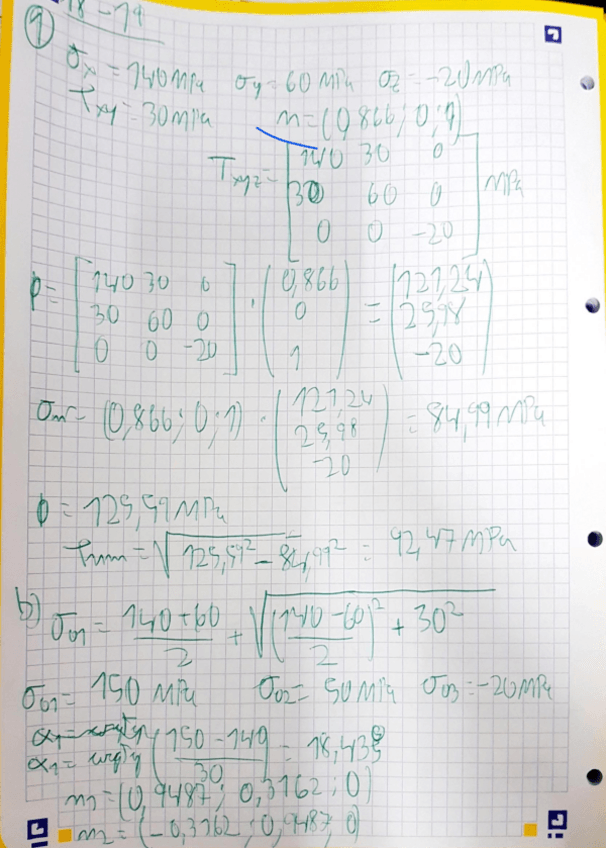 18-19
9)
σx = 140 MPa σy = 60 MPa σz = -20 MPa
τxy = 30 MPa n = (0,866; 0; 1)
Txyz = [140 30 0
30 60 0
0 0 -20] MPa
p = [140 30 0
30 60 0
0 0 -20] · (0,866
0
1) = (121,24
25,98
-20)
σn = (0,866; 0; 1) · (121,24
25,98
-20) = 84,99 MPa
p = 125,59 MPa
τnm = √125,59² - 84,99² = 92,47 MPa
b) σ01 = 140+60/2 + √(140-60/2)² + 30²
σ01 = 150 MPa σ02 = 50 MPa σ03 = -20 MPa
α1 = arctg (150-140/30) = 18,435°
n1 = (0,9487; 0,3162; 0)
n2 = (-0,3162; 0,9487; 0)